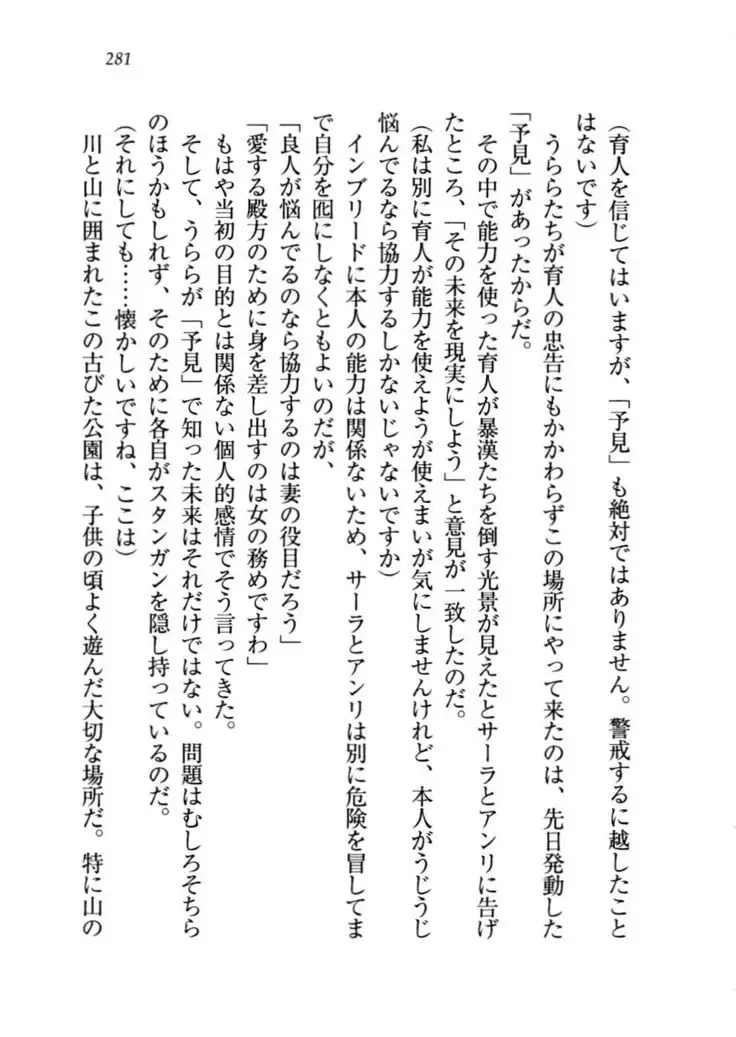 281
（育人を信じてはいますが、「予見」も絶対ではありません。警戒するに越したこと
はないです）
うららたちが育人の忠告にもかかわらずこの場所にやって来たのは、先日発動した
「予見」があったからだ。
その中で能力を使った育人が暴漢たちを倒す光景が見えたとサーラとアンリに告げ
たところ、「その未来を現実にしよう」と意見が一致したのだ。
（私は別に育人が能力を使えようが使えまいが気にしませんけれど、本人がうじうじ
悩んでるなら協力するしかないじゃないですか）
インブリードに本人の能力は関係ないため、サーラとアンリは別に危険を冒してま
で自分を囮にしなくともよいのだが、
「良人が悩んでるのなら協力するのは妻の役目だろう」
「愛する殿方のために身を差し出すのは女の務めですわ」
もはや当初の目的とは関係ない個人的感情でそう言ってきた。
そして、うららが「予見」で知った未来はそれだけではない。問題はむしろそちら
のほうかもしれず、そのために各自がスタンガンを隠し持っているのだ。
（それにしても……懐かしいですね、ここは）
川と山に囲まれたこの古びた公園は、子供の頃よく遊んだ大切な場所だ。特に山の